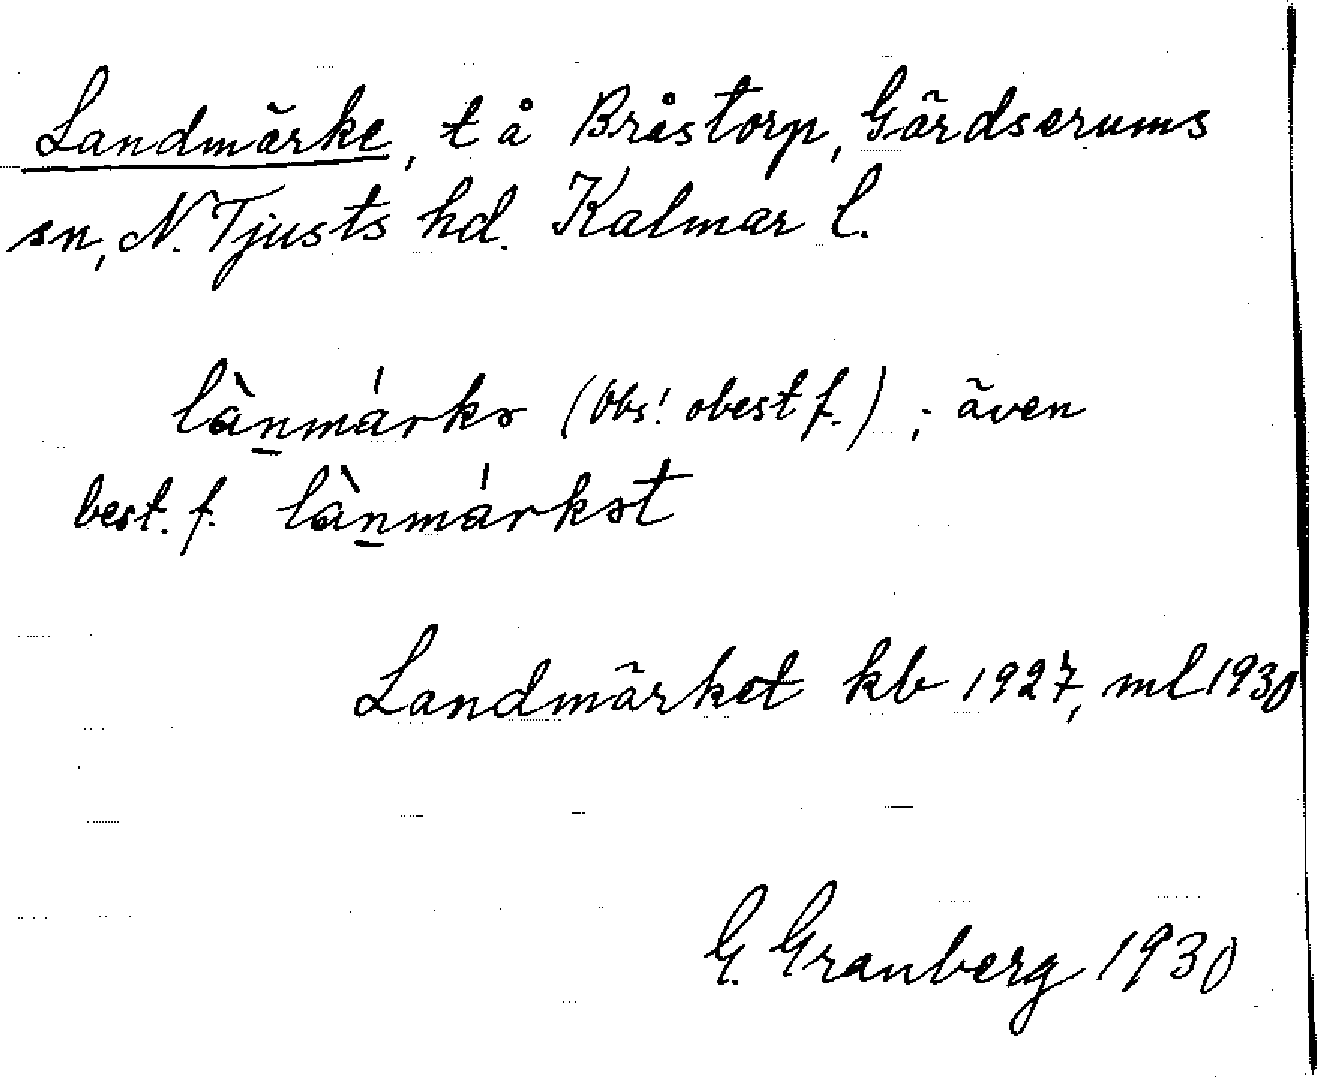 Landmärke, t å Bråstorp, Gärdserums
sn, N. Tjusts hd. Kalmar l.
lànmárkə (Obs! obest f.); även
best. f. lànmárkət
Landmärket kb 1927, ml 1930
G. Granberg 1930